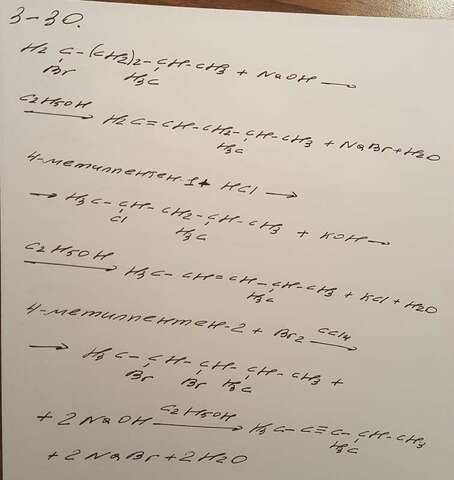 3-30.
H2C-(CH2)2-CH-CH3 + NaOH →
Br H3C
C2H5OH → H2C=CH-CH2-CH-CH3 + NaBr + H2O
H3C
4-метилпентен-1 + HCl →
→ H3C-CH-CH2-CH-CH3 + KOH →
Cl H3C
C2H5OH → H3C-CH=CH-CH-CH3 + KCl + H2O
H3C
4-метилпентен-2 + Br2 CCl4 →
→ H3C-CH-CH-CH-CH3 +
Br Br H3C
+ 2NaOH C2H5OH → H3C-C≡C-CH-CH3
H3C
+ 2NaBr + 2H2O